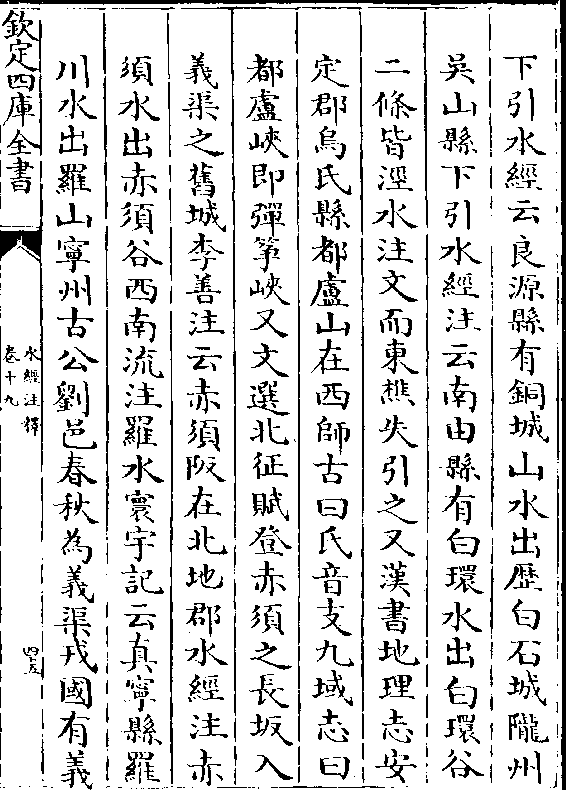 下引水經云良源縣有銅城山水出歴白石城隴州
吳山縣下引水經注云南由縣有白環水出白環谷
二條皆涇水注文而東樵失引之又漢書地理志安
定郡烏氏縣都盧山在西師古曰氏音支九域志曰
都盧峽即彈箏峽又文選北征賦登赤須之長坂入
義渠之舊城李善注云赤須阪在北地郡水經注赤
須水出赤須谷西南流注羅水寰宇記云真寧縣羅
川水出羅山寧州古公劉邑春秋為義渠戎國有義
欽定四庫全書
水經注釋
卷十九
四五